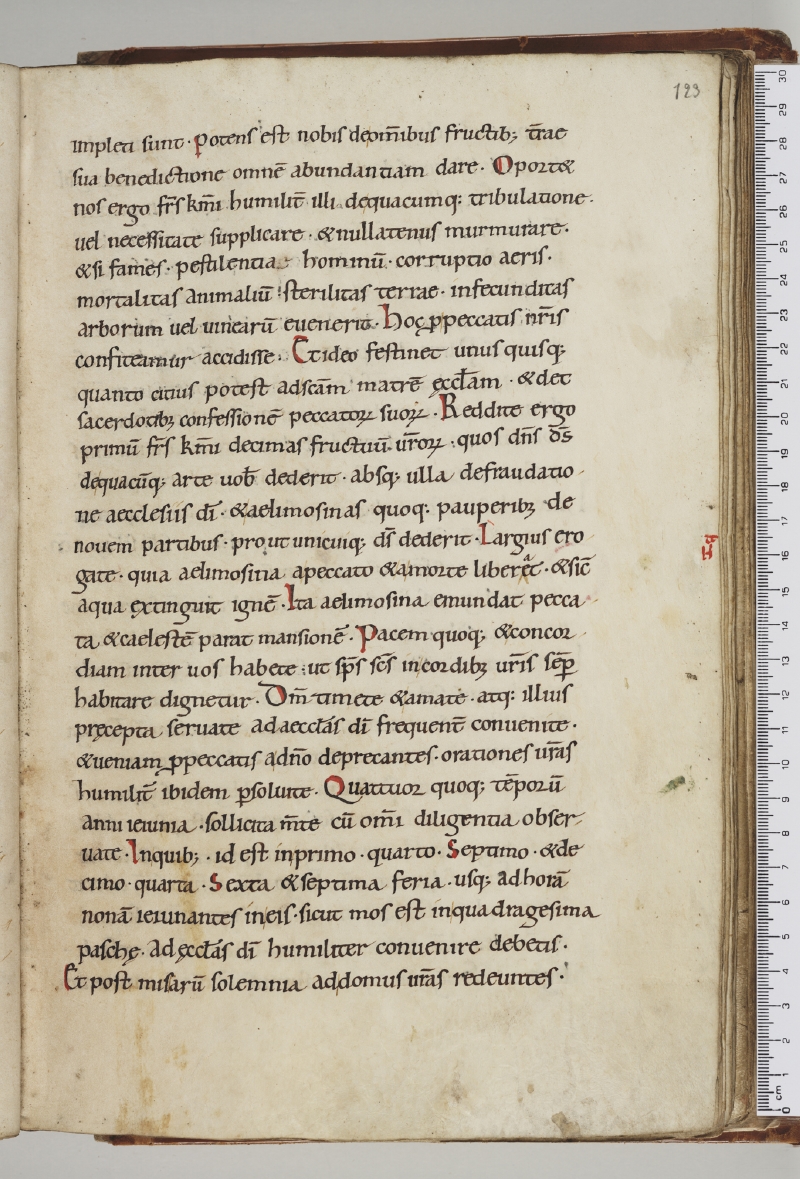 123
impleti sunt · Potens est nobis deom̄ibus fructib; t̄rae
sua benedictione omnē abundantiam dare · Oport&
nos ergo fr̄s km̄i humilit̄ illi dequacumq; tribulatione ·
uel necessitate supplicare · &nullatenus murmurare ·
&si fames · pestilentia · hominū · corruptio aeris ·
mortalitas animaliū · sterilitas terrae · infecunditas
arborum uel uinearū euenerit · Hoc ꝓpeccatis nr̄is
confiteamur accidisse · Et ideo festinet unus quisq;
quanto citius potest adscām matrē ęccƚam · &det
sacerdotib; confessionē peccatoꝝ suoꝝ · Reddite ergo
primū fr̄s km̄i decimas fructuū ur̄oꝝ · quos dn̄s d̄s
dequacūq; arte uob̄ dederit · absq; ulla defraudatio
ne aecclesiis dī · &aelimosinas quoq; pauperib; de
nouem partibus · prout unicuiq; d̄s dederit · Largius ero
gate · quia aelimosina apeccato &amorte liberat · &sic̄
aqua extinguit ignē · Ita aelimosina emundat pecca
ta &caelestē parat mansionē · Pacem quoq; &concor
diam inter uos habete · ut sp̄s sc̄s incordib; ur̄is sēꝑ
habitare dignetur · Dm̄ timete &amate · atq; illius
pręcepta seruate adaeccƚas dī frequent̄ conuenite ·
&ueniam ꝓpeccatis adn̄o deprecantes · orationes ur̄as
humilit̄ ibidem ꝑsoluite · Quattuor quoq; tēporū
anni ieiunia · sollicita m̄te cū om̄i diligentia obser
uate · Inquib; · id est inprimo · quarto · Septimo · &de
cimo · quarta · Sexta &septima feria · usq; adhorā
nonā ieiunantes ineis · sicut mos est inquadragesima
paschę · Ad ęccƚas dī humiliter conuenire debetis ·
Et post misarū solemnia addomus ur̄as redeuntes ·